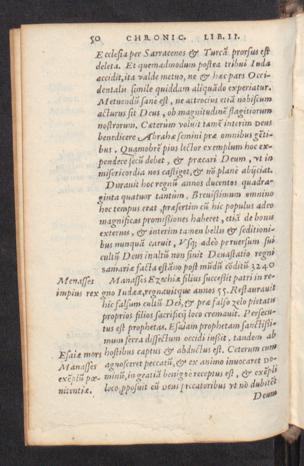 50 CHRONIC. LIB. II.
Ecclesia per Sarracenos & Turcã prorsus est
deleta. Et quemadmodum postea tribui Iuda
accidit, ita valde metuo, ne & hæc pars Occi-
dentalis simile quiddam aliquãdo experiatur.
Metuendũ sanè est, ne atrocius etiã nobiscum
acturus sit Deus, ob magnitudinẽ flagitiorum
nostrorum. Cæterùm voluit tamẽ interim Deus
benedicere Abrahæ semini præ omnibus gẽti-
bus. Quamobrẽ pius lector exemplum hoc ex-
pendere secũ debet, & præcari Deum, vt in
misericordia nos castiget, & nõ planè abijciat.
Durauit hoc regnũ annos ducentos quadra-
ginta quatuor tantùm. Breuissimum omnino
hoc tempus erat, præsertim cũ hic populus adeo
magnificas promissiones haberet, etiã de bonis
externis, & interim tamen bellis & seditioni-
bus nunquã caruit. Vsq; adeò peruersum sui
cultũ Deus inultũ non sinit. Deuastatio regni
Samariæ facta est ãno post mũdũ cõditũ 3240
Menasses Manasses Ezechiæ filius successit patri in re-
impius rex gno Iudææ, regnauitque annos 55. Restaurauit
hic falsum cultũ Dei, & præ falso zelo pietatis
proprios filios sacrificij loco cremauit. Persecu-
tus est prophetas. Esaiam prophetam sanctissi-
mum serra dissectum occidi iussit, tandem ab
Esaiæ mors hostibus captus & abductus est. Ceterum cum
Manasses agnosceret peccatũ, & ex animo inuocaret no-
exẽplũ pœ- minũ, in gratiã benignè receptus est, & exẽpli
nitentiæ. loco ꝓposuit eũ Deus peccatoribus vt nõ dubitẽt
Deum